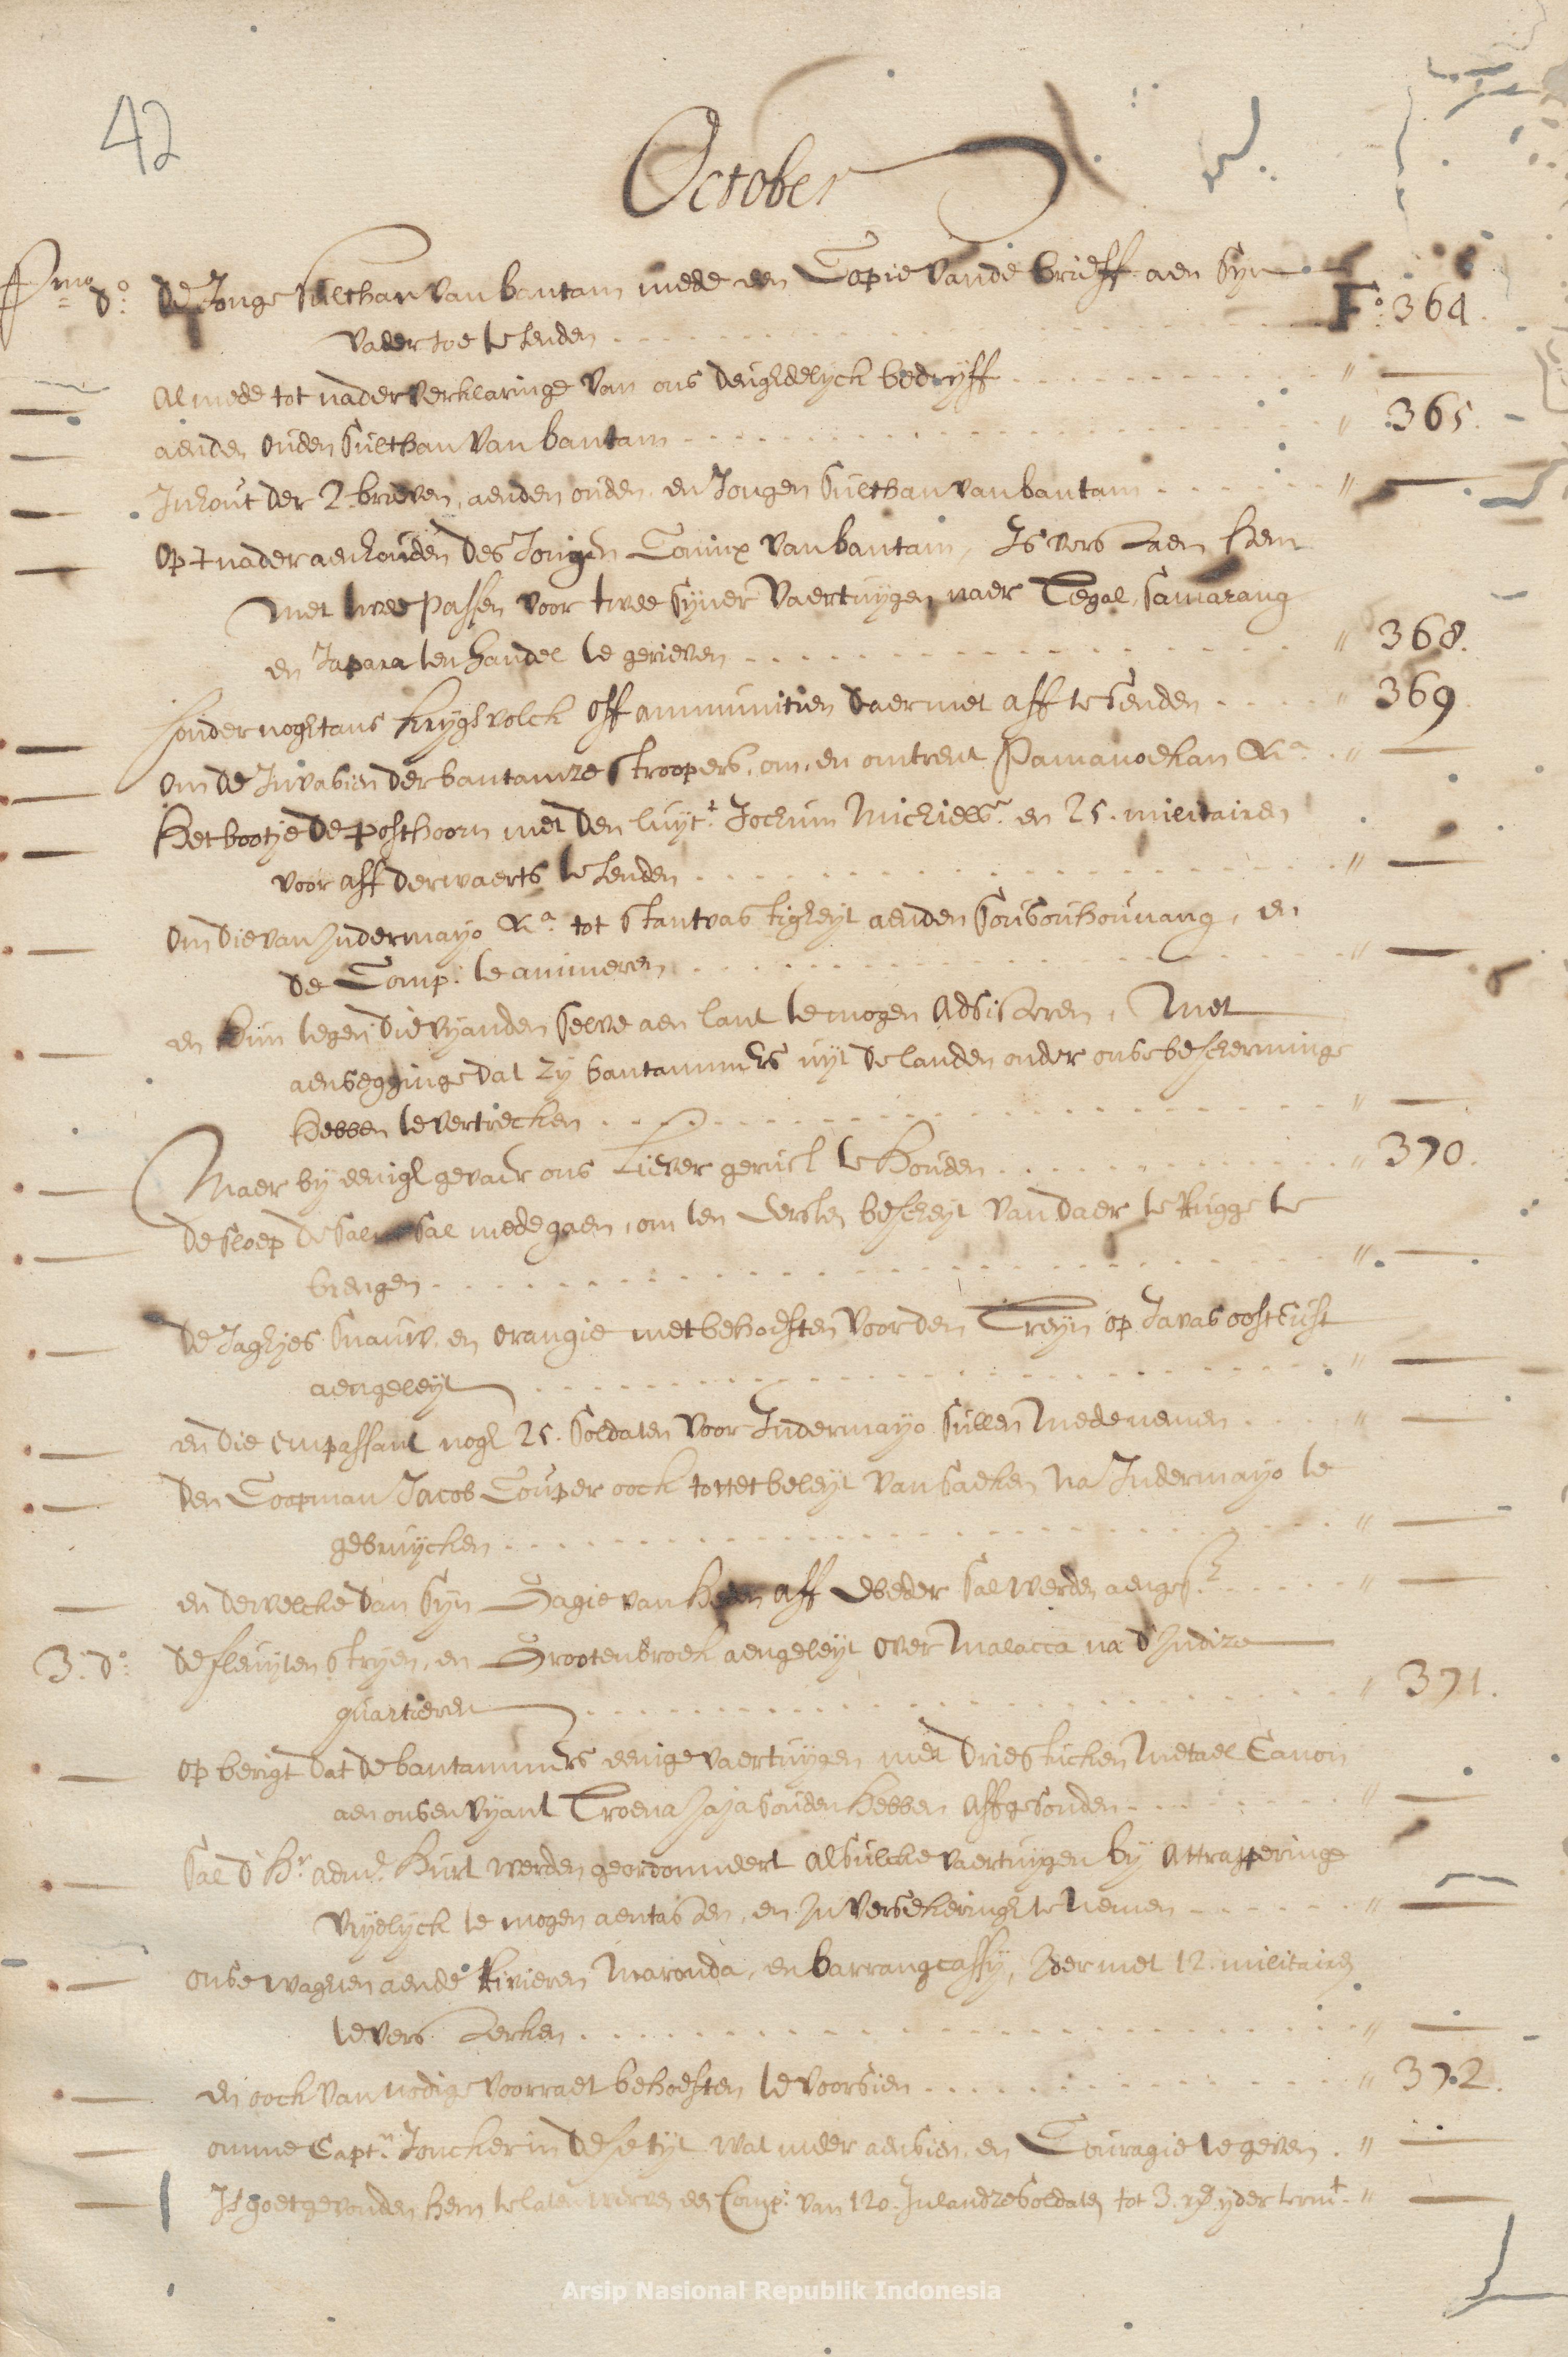 42
October
Pmo do: de Jonge Sulthan van bantam mede een Copie vande brieff aen Syn
vader toe te senden . . . . . . . Fo: 364.
Al mede tot nader verklaringe van ons deughdelyck bedryff . . . . . . " —
aenden ouden Sulthan van bantam . . . . . . " 365.
Inhout der 2. brieven, aenden ouden en Jongen Sulthan van bantam . . . . . . " —
op t nader aenhouden des Jongen Coninx van bantam, Is verstaen hem
met twee passen voor twee Syner vaertuygen naer Tegal, Samarang
en Japara ten handel te gerieven . . . . . . " 368.
sonder noghtans krygsvolck off ammunitien daermet aff te senden . . . . " 369
om de Invasien der bantamze stroopers, om, en omtrent Pamanoekan &a. . " —
Het bootje de posthoorn met den luyt:t Jochum Michielsz: en 25. militairen
voor aff derwaerts te senden . . . . . . " —
om die van Indermayo &a: tot stantvastigheyt aenden Sousouhounang, en
de Comp: te animeren . . . . . . " —
en hun tegen die vyanden selve aen lant te mogen adsisteren, Met
aensegginge dat zy bantammers uyt de landen onder onse bescherminge
hebben te vertrecken . . . . . . " —
Maer by eenigh gevaer ons liever gerust te houden . . . . . . " 370.
de sloep de Salm sal mede gaen, om ten eersten bescheyt van daer te rugge te
brengen . . . . . . " —
de Jaghjes Snauw, en orangie met behoeften voor den Treyn op Javas oostcust
aengeleyt . . . . . . " —
en die empassant nogh 25. Soldaten voor Indermayo sullen Mede nemen . . . " —
den Coopman Jacob Couper oock tot het beleyt van saeken na Indermayo te
gebruycken . . . . . . " —
en dewelcke dan Syn Gagie van heden aff weder sal werden aenges: . . . . " —
3. do: de fluyten Stryen, en Grootenbroek aengeleyt over Malacca na d'Indize
quartieren . . . . . . " 371.
op berigt dat de bantammers eenige vaertuygen met drie sticken Metael Canon
aen onsen vyant Troena Jaja souden hebben affgesonden . . . . . . " —
Sal d' Hr. adml: Hurt werden geordonneert alsulcke vaertuygen by attrappering
vryelyck te mogen aentasten, en In versekeringh te nemen . . . . . . " —
onse waghten aende Rivieren Maronda, en barrangcassy, Ider met 12. militairen
te versterken . . . . . . " —
en oock van nodige voorraet behoeften te voorsien . . . . . . " 372.
omme Captn: Joncker in dese tyt wat meer aensien, en Couragie te geven . " —
Is goet gevonden hem te laten werven een Comp: van 120. Inlandze Soldaten tot 3. rds. yder ter mt. " —
Arsip Nasional Republik Indonesia